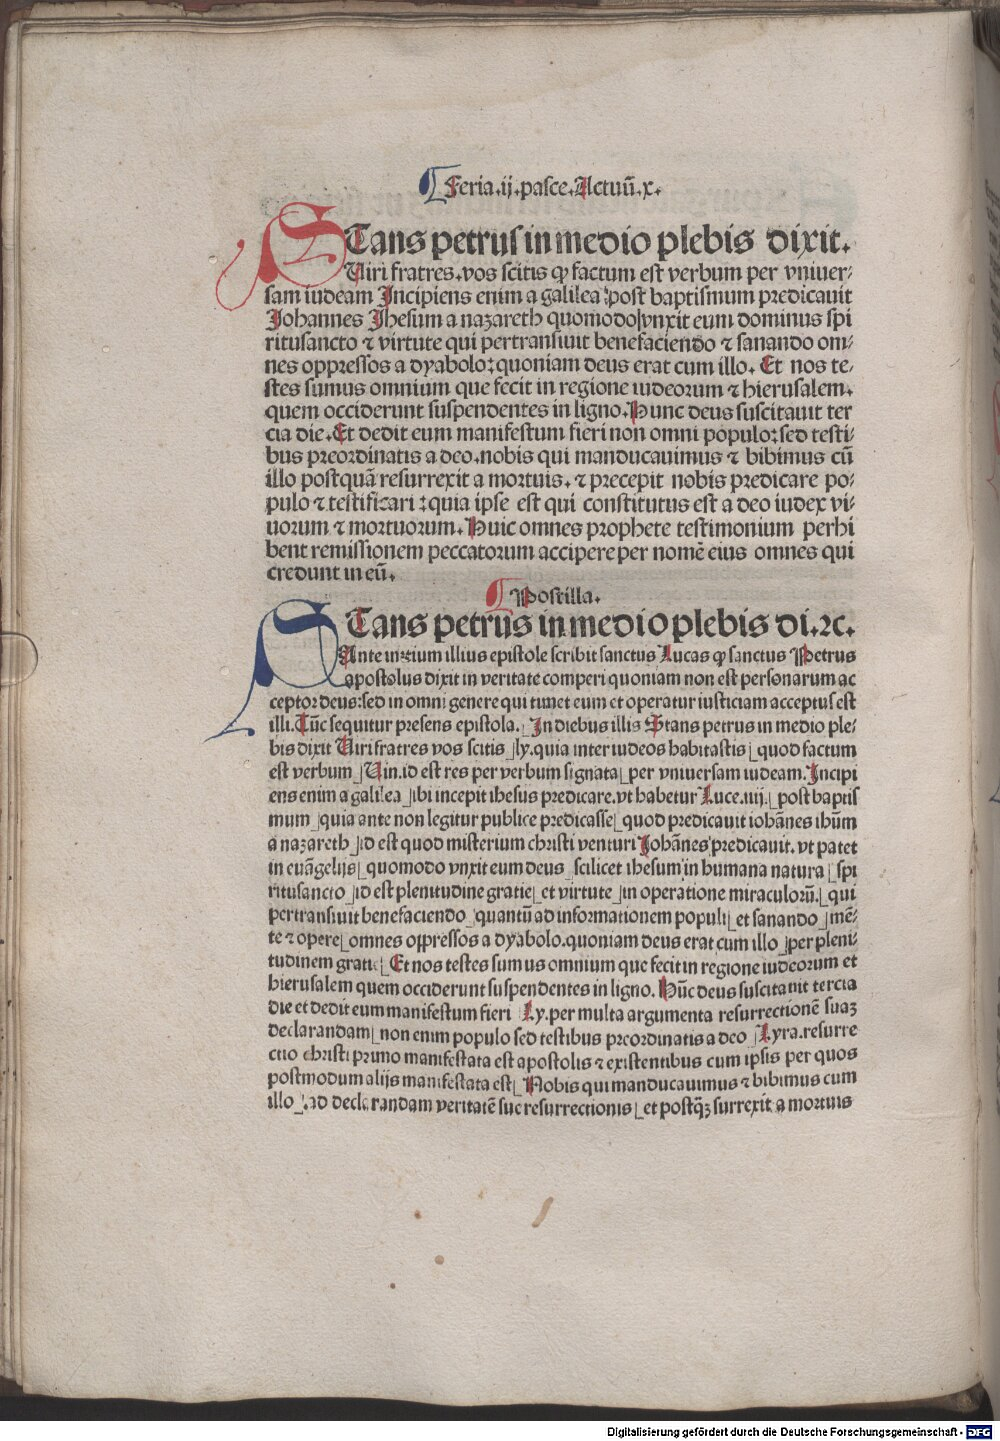 Feria.ij.pasce.Actuū.x.
STans petrus in medio plebis dixit.
Viri fratres.vos scitis ꝙ factum est verbum per vniuer⸗
sam iudeam Incipiens enim a galilea post baptismum predicauit
Johannes Jhesum a nazareth quomodo vnxit eum dominus spi
ritusancto ⁊ virtute qui pertransiuit benefaciendo ⁊ sanando om⸗
nes oppressos a dyabolo:quoniam deus erat cum illo. Et nos te⸗
stes sumus omnium que fecit in regione iudeorum ⁊ hierusalem.
quem occiderunt suspendentes in ligno.Hunc deus suscitauit ter
cia die.Et dedit eum manifestum fieri non omni populo:sed testi⸗
bus preordinatis a deo.nobis qui manducauimus ⁊ bibimus cū
illo postquā resurrexit a mortuis. ⁊ precepit nobis predicare po⸗
pulo ⁊ testificari :quia ipse est qui constitutus est a deo iudex vi⸗
uorum ⁊ mortuorum. Huic omnes prophete testimonium perhi
bent remissionem peccatorum accipere per nomē eius omnes qui
credunt in eū.
Postilla.
STans petrus in medio plebis di.⁊c.
Ante inicium illius epistole scribit sanctus Lucas ꝙ sanctus Petrus
apostolus dixit in veritate comperi quoniam non est personarum ac
ceptor deus:sed in omni genere qui timet eum et operatur iusticiam acceptus est
illi.Tūc sequitur presens epistola. In diebus illis Stans petrus in medio ple⸗
bis dixit Viri fratres vos scitis ly.quia inter iudeos habitastis quod factum
est verbum Vin.id est res per verbum signata per vniuersam iudeam.Incipi
ens enim a galilea ibi incepit ihesus predicare.vt habetur Luce.iiij. post baptis
mum quia ante non legitur publice predicasse quod predicauit iohānes ihūm
a nazareth id est quod misterium christi venturi Johānes predicauit. vt patet
in euāgelijs quomodo vnxit eum deus scilicet ihesum in humana natura spi
ritusancto id est plenitudine gratie et virtute in operatione miraculorū. qui
pertransiuit benefaciendo quantū ad informationem populi et sanando mē⸗
te ⁊ opere omnes oppressos a dyabolo.quoniam deus erat cum illo per pleni⸗
tudinem gratie Et nos testes sumus omnium que fecit in regione iudeorum et
hierusalem quem occiderunt suspendentes in ligno. Hūc deus suscitauit tercia
die et dedit eum manifestum fieri Ly.per multa argumenta resurrectionē suaꝫ
declarandam non enim populo sed testibus preordinatis a deo Lyra.resurre
ctio christi primo manifestata est apostolis ⁊ existentibus cum ipsis per quos
postmodum alijs manifestata est Nobis qui manducauimus ⁊ bibimus cum
illo .ad declarandam veritatē sue resurrectionis et postq̄ꝫ surrexit a mortuis
Digitalisierung gefördert durch die Deutsche Forschungsgemeinschaft - DFG